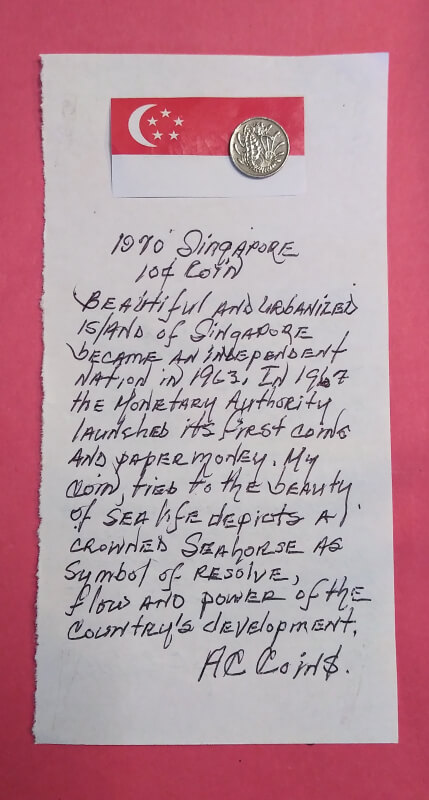 1970 Singapore
10¢ Coin
Beautiful and urbanized
island of Singapore
became an independent
nation in 1963. In 1967
the Monetary Authority
launched its first coins
and paper money. My
coin, tied to the beauty
of sea life depicts a
crowned seahorse as
symbol of resolve,
flow and power of the
country's development.
AC Coin$.